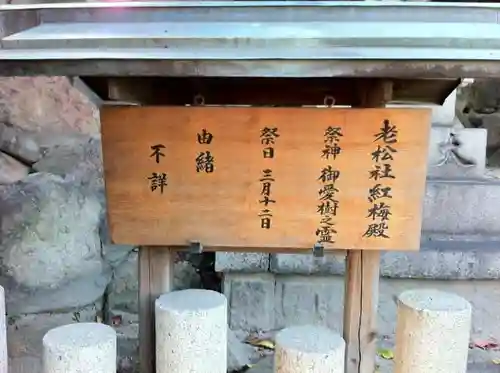 老松社 紅梅殿
祭神 御愛樹之霊
祭日 三月十二日
由緒
不詳